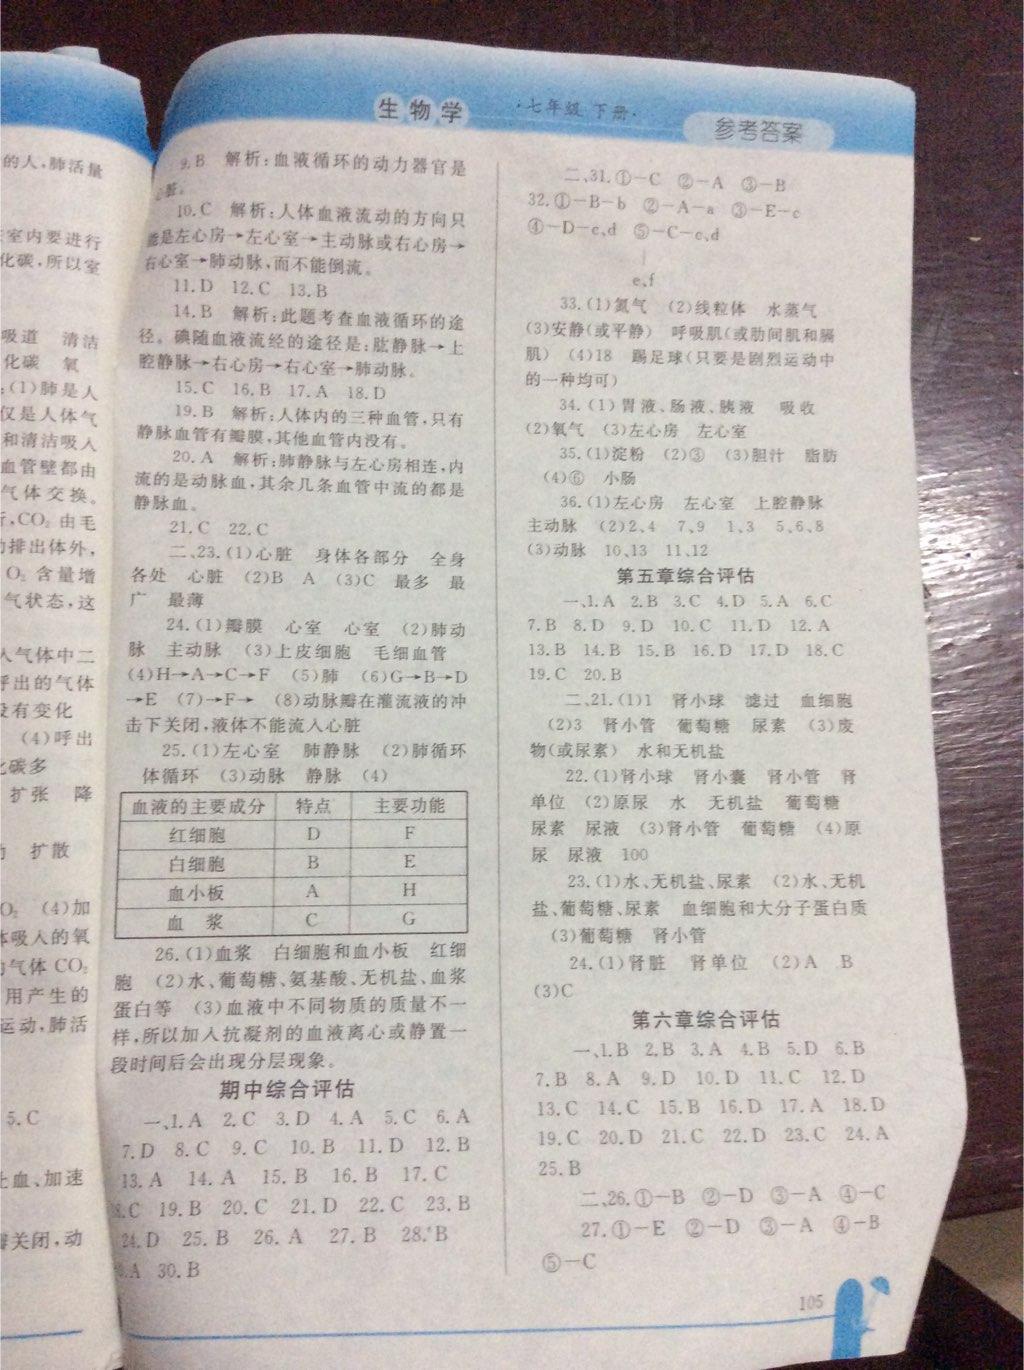 的人,肺活量
室内要进行
化碳,所以室
吸道 清洁
化碳 氧
(1)肺是人
仅是人体气
和清洁吸入
血管壁都由
气体交换。
CO₂ 由毛
排出体外,
O₂ 含量增
气状态,这
人气体中二
呼出的气体
没有变化
(4)呼出
化碳多
扩张 降
扩散
O₂ (4)加
体吸入的氧
的气体CO₂
用产生的
运动,肺活
5.C
止血、加速
瓣关闭,动
生物学
·七年级 下册·
参考答案
9.B 解析:血液循环的动力器官是
心脏。
10.C 解析:人体血液流动的方向只
能是左心房→左心室→主动脉或右心房→
右心室→肺动脉,而不能倒流。
11.D 12.C 13.B
14.B 解析:此题考查血液循环的途
径。碘随血液流经的途径是:肱静脉→上
腔静脉→右心房→右心室→肺动脉。
15.C 16.B 17.A 18.D
19.B 解析:人体内的三种血管,只有
静脉血管有瓣膜,其他血管内没有。
20.A 解析:肺静脉与左心房相连,内
流的是动脉血,其余几条血管中流的都是
静脉血。
21.C 22.C
二、23.(1)心脏 身体各部分 全身
各处 心脏 (2)B A (3)C 最多 最
广 最薄
24.(1)瓣膜 心室 心室 (2)肺动
脉 主动脉 (3)上皮细胞 毛细血管
(4)H→A→C→F (5)肺 (6)G→B→D
→E (7)→F→ (8)动脉瓣在灌流液的冲
击下关闭,液体不能流入心脏
25.(1)左心室 肺静脉 (2)肺循环
体循环 (3)动脉 静脉 (4)
血液的主要成分 特点 主要功能
红细胞 D F
白细胞 B E
血小板 A H
血 浆 C G
26.(1)血浆 白细胞和血小板 红细
胞 (2)水、葡萄糖、氨基酸、无机盐、血浆
蛋白等 (3)血液中不同物质的质量不一
样,所以加入抗凝剂的血液离心或静置一
段时间后会出现分层现象。
期中综合评估
一、1.A 2.C 3.D 4.A 5.C 6.A
7.D 8.C 9.C 10.B 11.D 12.B
13.A 14.A 15.B 16.B 17.C
8.C 19.B 20.C 21.D 22.C 23.B
24.D 25.B 26.A 27.B 28.B
.A 30.B
二、31.①－C ②－A ③－B
32.①－B－b ②－A－a ③－E－c
④－D－c,d ⑤－C－c,d
|
e,f
33.(1)氮气 (2)线粒体 水蒸气
(3)安静(或平静) 呼吸肌(或肋间肌和膈
肌) (4)18 踢足球(只要是剧烈运动中
的一种均可)
34.(1)胃液、肠液、胰液 吸收
(2)氧气 (3)左心房 左心室
35.(1)淀粉 (2)③ (3)胆汁 脂肪
(4)⑥ 小肠
36.(1)左心房 左心室 上腔静脉
主动脉 (2)2、4 7、9 1、3 5、6、8
(3)动脉 10、13 11、12
第五章综合评估
一、1.A 2.B 3.C 4.D 5.A 6.C
7.B 8.D 9.D 10.C 11.D 12.A
13.B 14.B 15.B 16.D 17.D 18.C
19.C 20.B
二、21.(1)1 肾小球 滤过 血细胞
(2)3 肾小管 葡萄糖 尿素 (3)废
物(或尿素) 水和无机盐
22.(1)肾小球 肾小囊 肾小管 肾
单位 (2)原尿 水 无机盐 葡萄糖
尿素 尿液 (3)肾小管 葡萄糖 (4)原
尿 尿液 100
23.(1)水、无机盐、尿素 (2)水、无机
盐、葡萄糖、尿素 血细胞和大分子蛋白质
(3)葡萄糖 肾小管
24.(1)肾脏 肾单位 (2)A B
(3)C
第六章综合评估
一、1.B 2.B 3.A 4.B 5.D 6.B
7.B 8.A 9.D 10.D 11.C 12.D
13.C 14.C 15.B 16.D 17.A 18.D
19.C 20.D 21.C 22.D 23.C 24.A
25.B
二、26.①－B ②－D ③－A ④－C
27.①－E ②－D ③－A ④－B
⑤－C
105